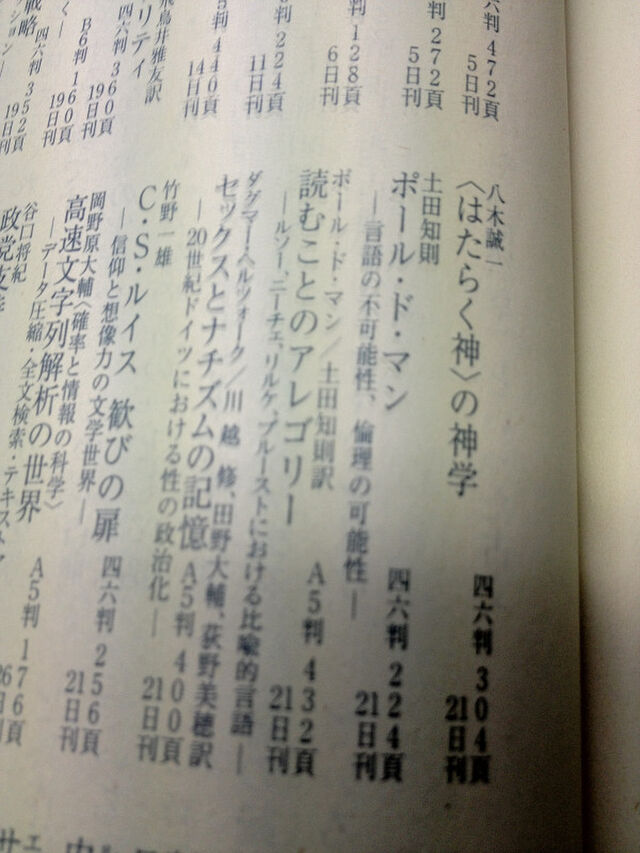 六判 472頁
5日刊
判 272頁
5日刊
判 128頁
6日刊
判 224頁
11日刊
飛鳥井雅友訳
判 440頁
14日刊
リティ
四六判 360頁
19日刊
く―
B6判 160頁
19日刊
戦略
ション―
四六判 352頁
19日刊
八木誠一
〈はたらく神〉の神学
四六判 304頁
21日刊
土田知則
ポール・ド・マン
―言語の不可能性、倫理の可能性―
四六判 224頁
21日刊
ポール・ド・マン／土田知則訳
読むことのアレゴリー
―ルソー、ニーチェ、リルケ、プルーストにおける比喩的言語―
A5判 432頁
21日刊
ダグマー・ヘルツォーク／川越修、田野大輔、荻野美穂訳
セックスとナチズムの記憶
―20世紀ドイツにおける性の政治化―
A5判 400頁
21日刊
竹野一雄
C・S・ルイス 歓びの扉
―信仰と想像力の文学世界―
四六判 256頁
21日刊
岡野原大輔〈確率と情報の科学〉
高速文字列解析の世界
―データ圧縮・全文検索・テキスト
A5判 176頁
26日刊
谷口将紀
政党支持